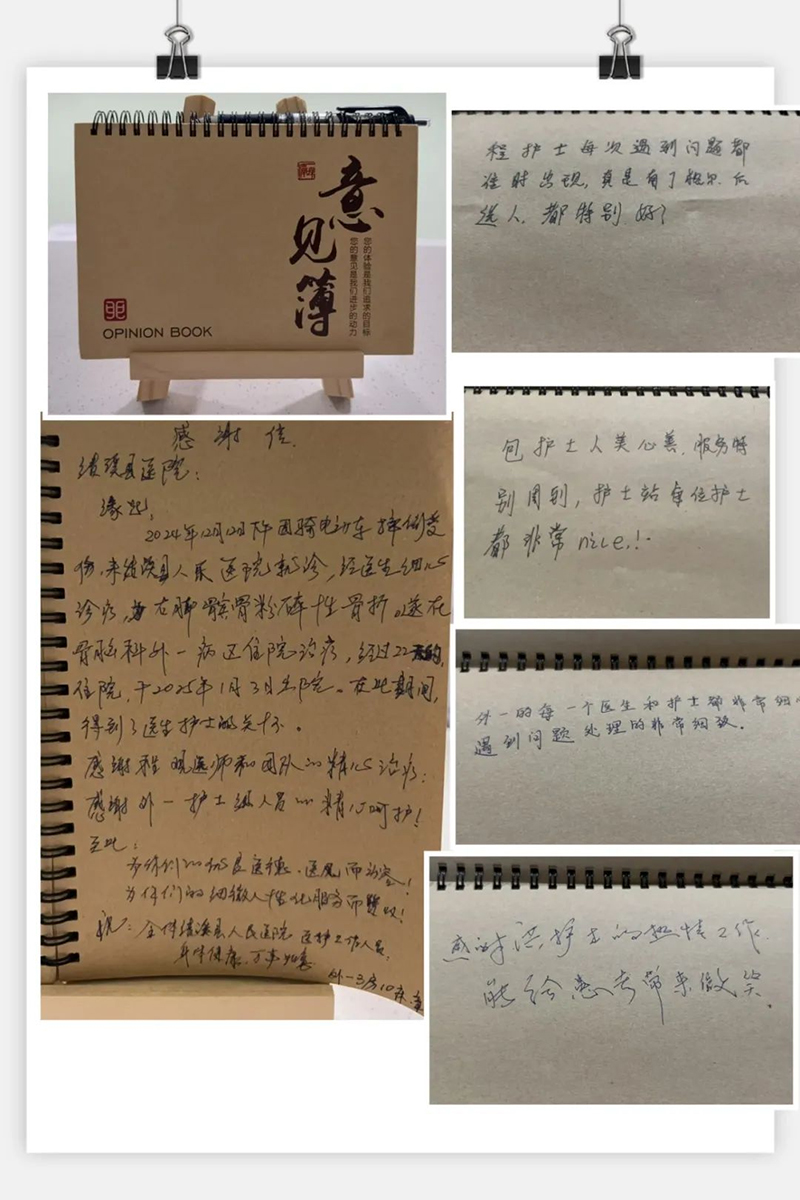 意见簿
您的体验是我们追求的目标
您的意见是我们进步的动力
OPINION BOOK
程护士每次遇到问题都
准时出现,真是有了
人,都特别好!
包护士人美心善,服务特
别周到,护士站每位护士
都非常nice!
外一的每一个医生和护士都非常细心
遇到问题处理的非常细致。
感谢洪护士的热情工作
能给患者带来微笑
感谢信
绩溪县医院:
缘起,
2024年12月12日下午因骑电动车摔倒受
伤,来绩溪县人民医院就诊,经医生细心
诊疗,为右脚髌骨粉碎性骨折。遂在
骨脑科外一病区住院治疗,经过22天的
住院,于2025年1月3日出院。在此期间,
得到了医生护士的关怀。
感谢程观医师和团队的精心治疗;
感谢外一护士组人员的精心呵护!
至此:
为你们的优良医德、医风而
为你们的细微人性化服务而赞叹!
祝:全体绩溪县人民医院医护工作人员,
身体健康,万事如意
外一3房10床